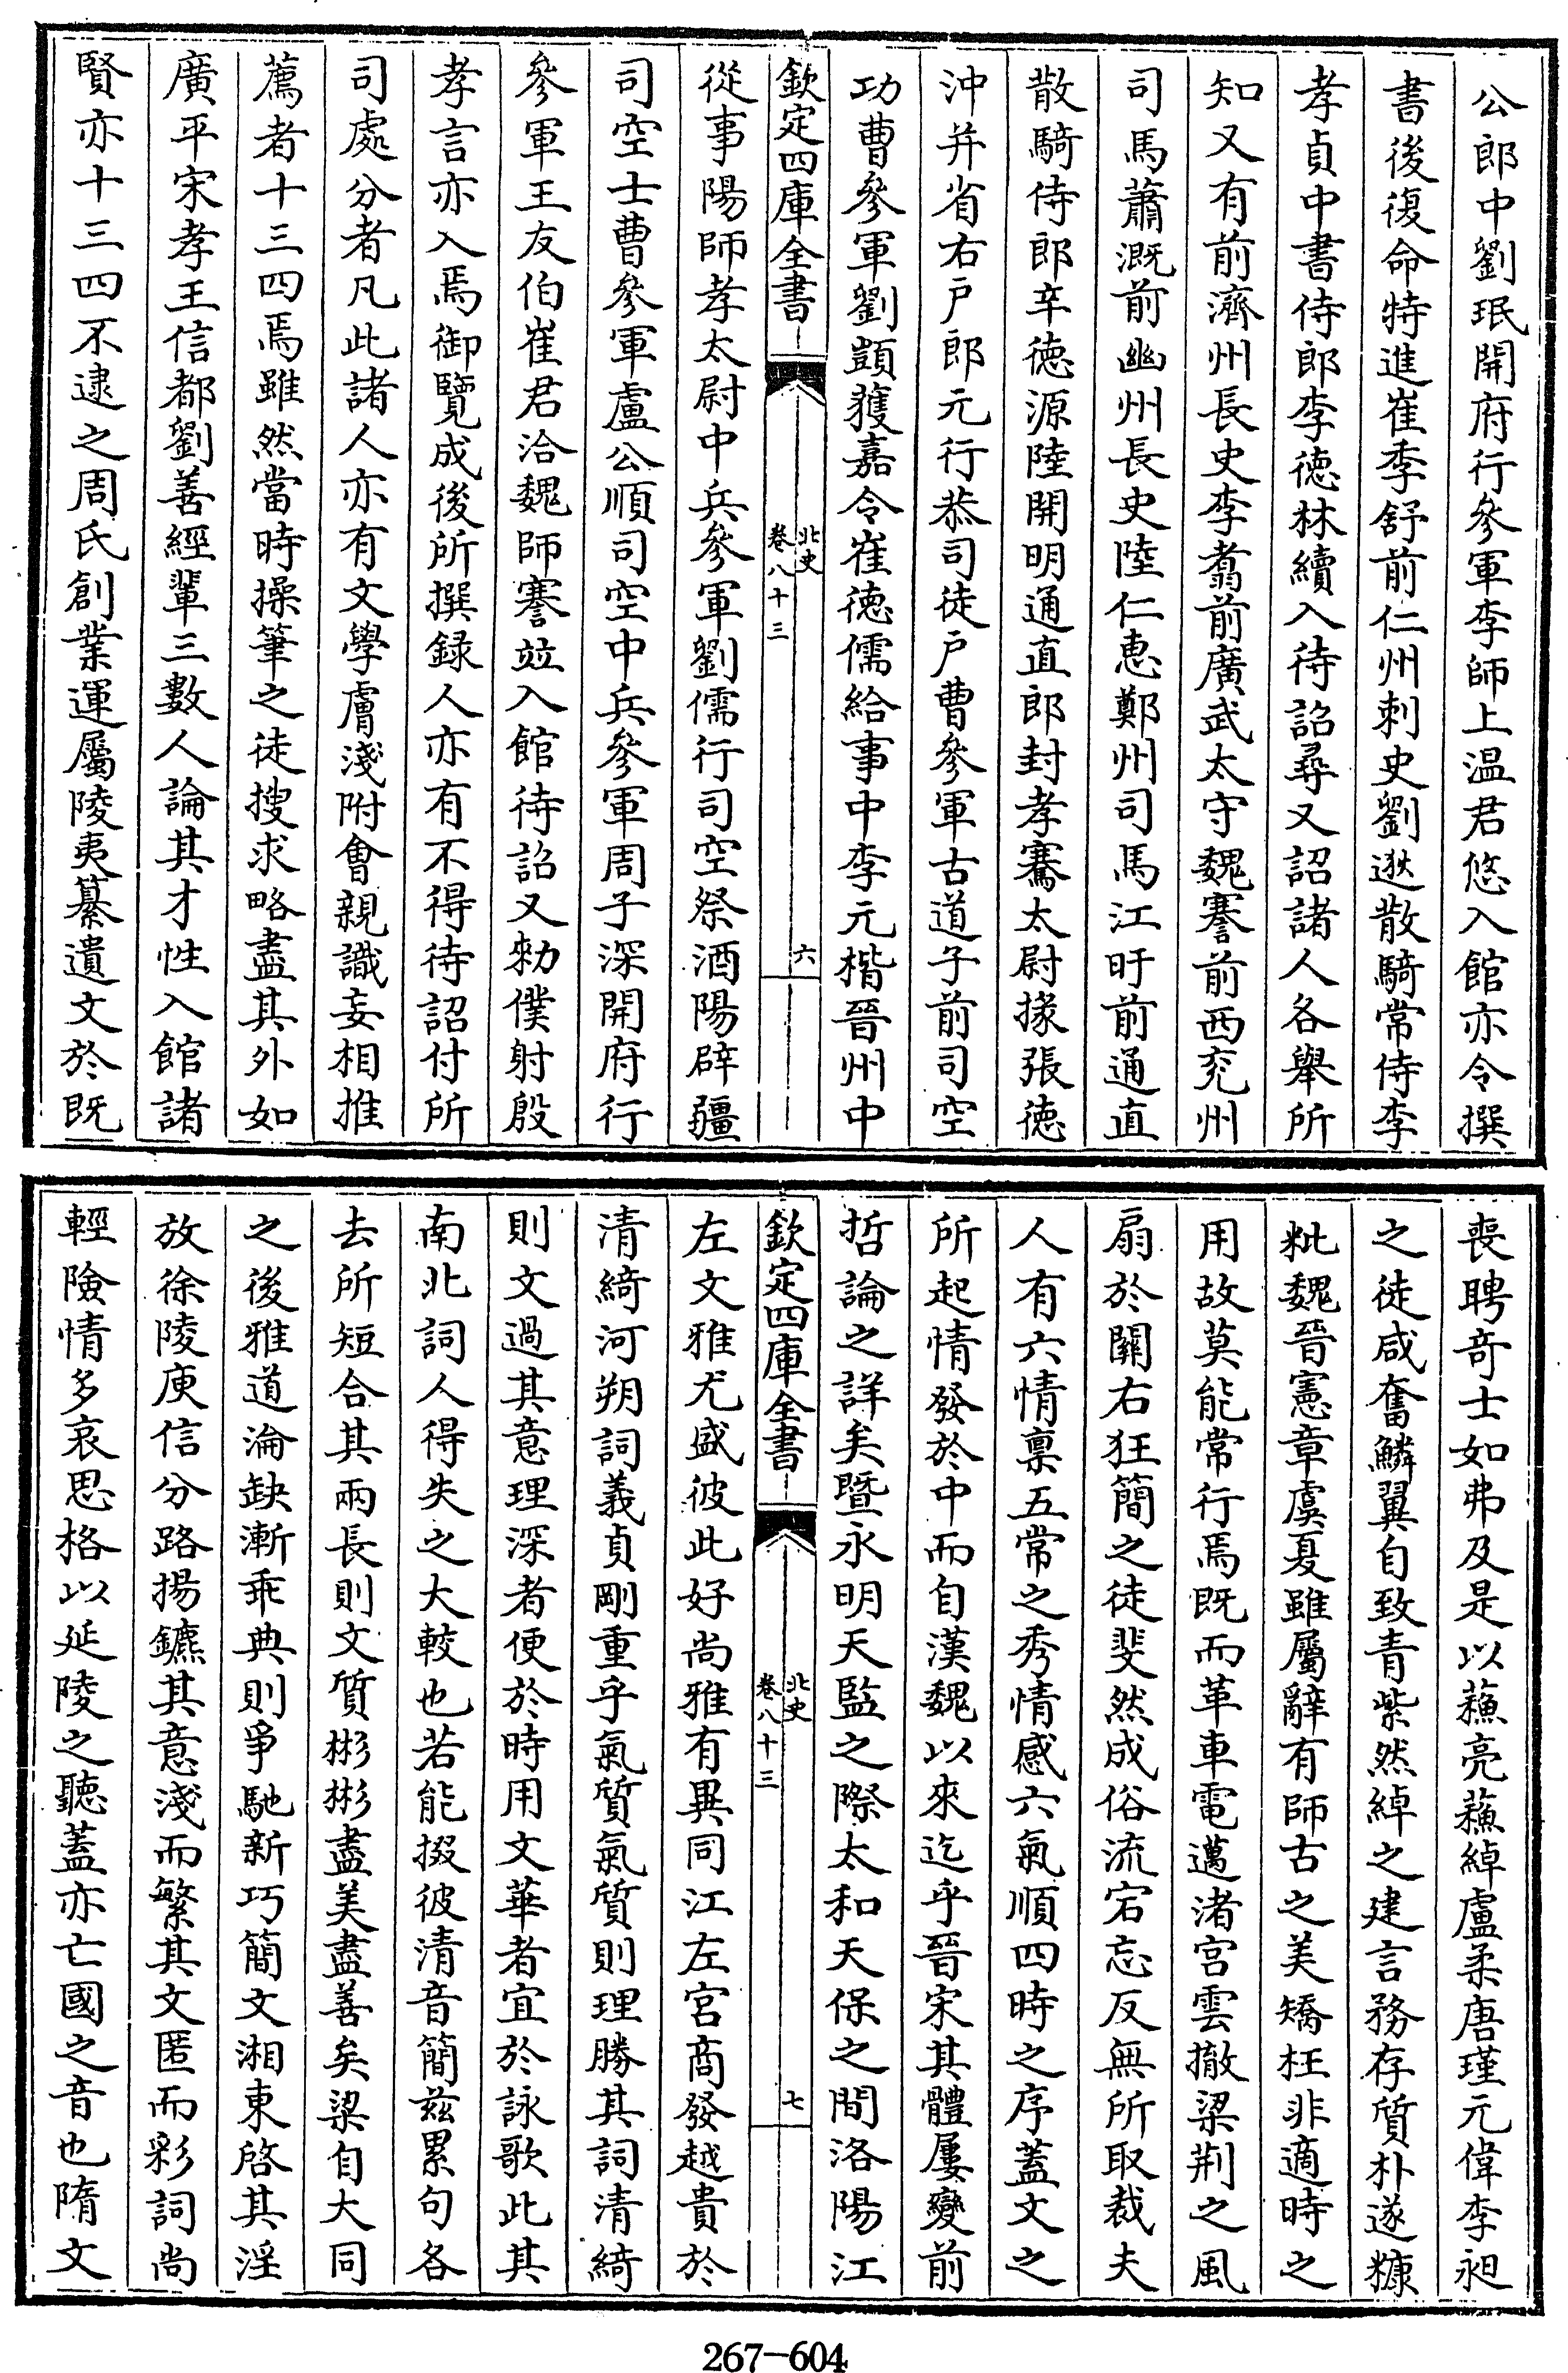 公郎中劉珉開府行參軍李師上温君悠入館亦令撰
書後復命特進崔季舒前仁州刺史劉逖散騎常侍李
孝貞中書侍郎李德林續入待詔尋又詔諸人各舉所
知又有前濟州長史李翥前廣武太守魏謇前西兖州
司馬蕭溉前幽州長史陸仁惠鄭州司馬江旰前通直
散騎侍郎辛德源陸開明通直郎封孝騫太尉掾張德
沖并省右戸郎元行恭司徒戸曹參軍古道子前司空
功曹參軍劉顗獲嘉令崔德儒給事中李元楷晉州中
欽定四庫全書
北史
卷八十三
六
從事陽師孝太尉中兵參軍劉儒行司空祭酒陽辟疆
司空士曹參軍盧公順司空中兵參軍周子深開府行
參軍王友伯崔君洽魏師謇竝入館待詔又勅僕射殷
孝言亦入焉御覽成後所撰録人亦有不得待詔付所
司處分者凡此諸人亦有文學膚淺附會親識妄相推
薦者十三四焉雖然當時操筆之徒搜求略盡其外如
廣平宋孝王信都劉善經輩三數人論其才性入館諸
賢亦十三四不逮之周氏創業運屬陵夷纂遺文於既
喪聘奇士如弗及是以蘓亮蘓綽盧柔唐瑾元偉李昶
之徒咸奮鱗翼自致青紫然綽之建言務存質朴遂糠
粃魏晉憲章虞夏雖屬辭有師古之美矯枉非適時之
用故莫能常行焉既而革車電邁渚宮雲撤梁荆之風
扇於關右狂簡之徒斐然成俗流宕忘反無所取裁夫
人有六情稟五常之秀情感六氣順四時之序蓋文之
所起情發於中而自漢魏以來迄乎晉宋其體屢變前
哲論之詳矣暨永明天監之際太和天保之間洛陽江
欽定四庫全書
北史
卷八十三
七
左文雅尤盛彼此好尚雅有異同江左宮商發越貴於
清綺河朔詞義貞剛重乎氣質氣質則理勝其詞清綺
則文過其意理深者便於時用文華者宜於詠歌此其
南北詞人得失之大較也若能掇彼清音簡茲累句各
去所短合其兩長則文質彬彬盡美盡善矣梁自大同
之後雅道淪缺漸乖典則爭馳新巧簡文湘東啓其淫
放徐陵庾信分路揚鑣其意淺而繁其文匿而彩詞尚
輕險情多哀思格以延陵之聽蓋亦亡國之音也隋文
267-604